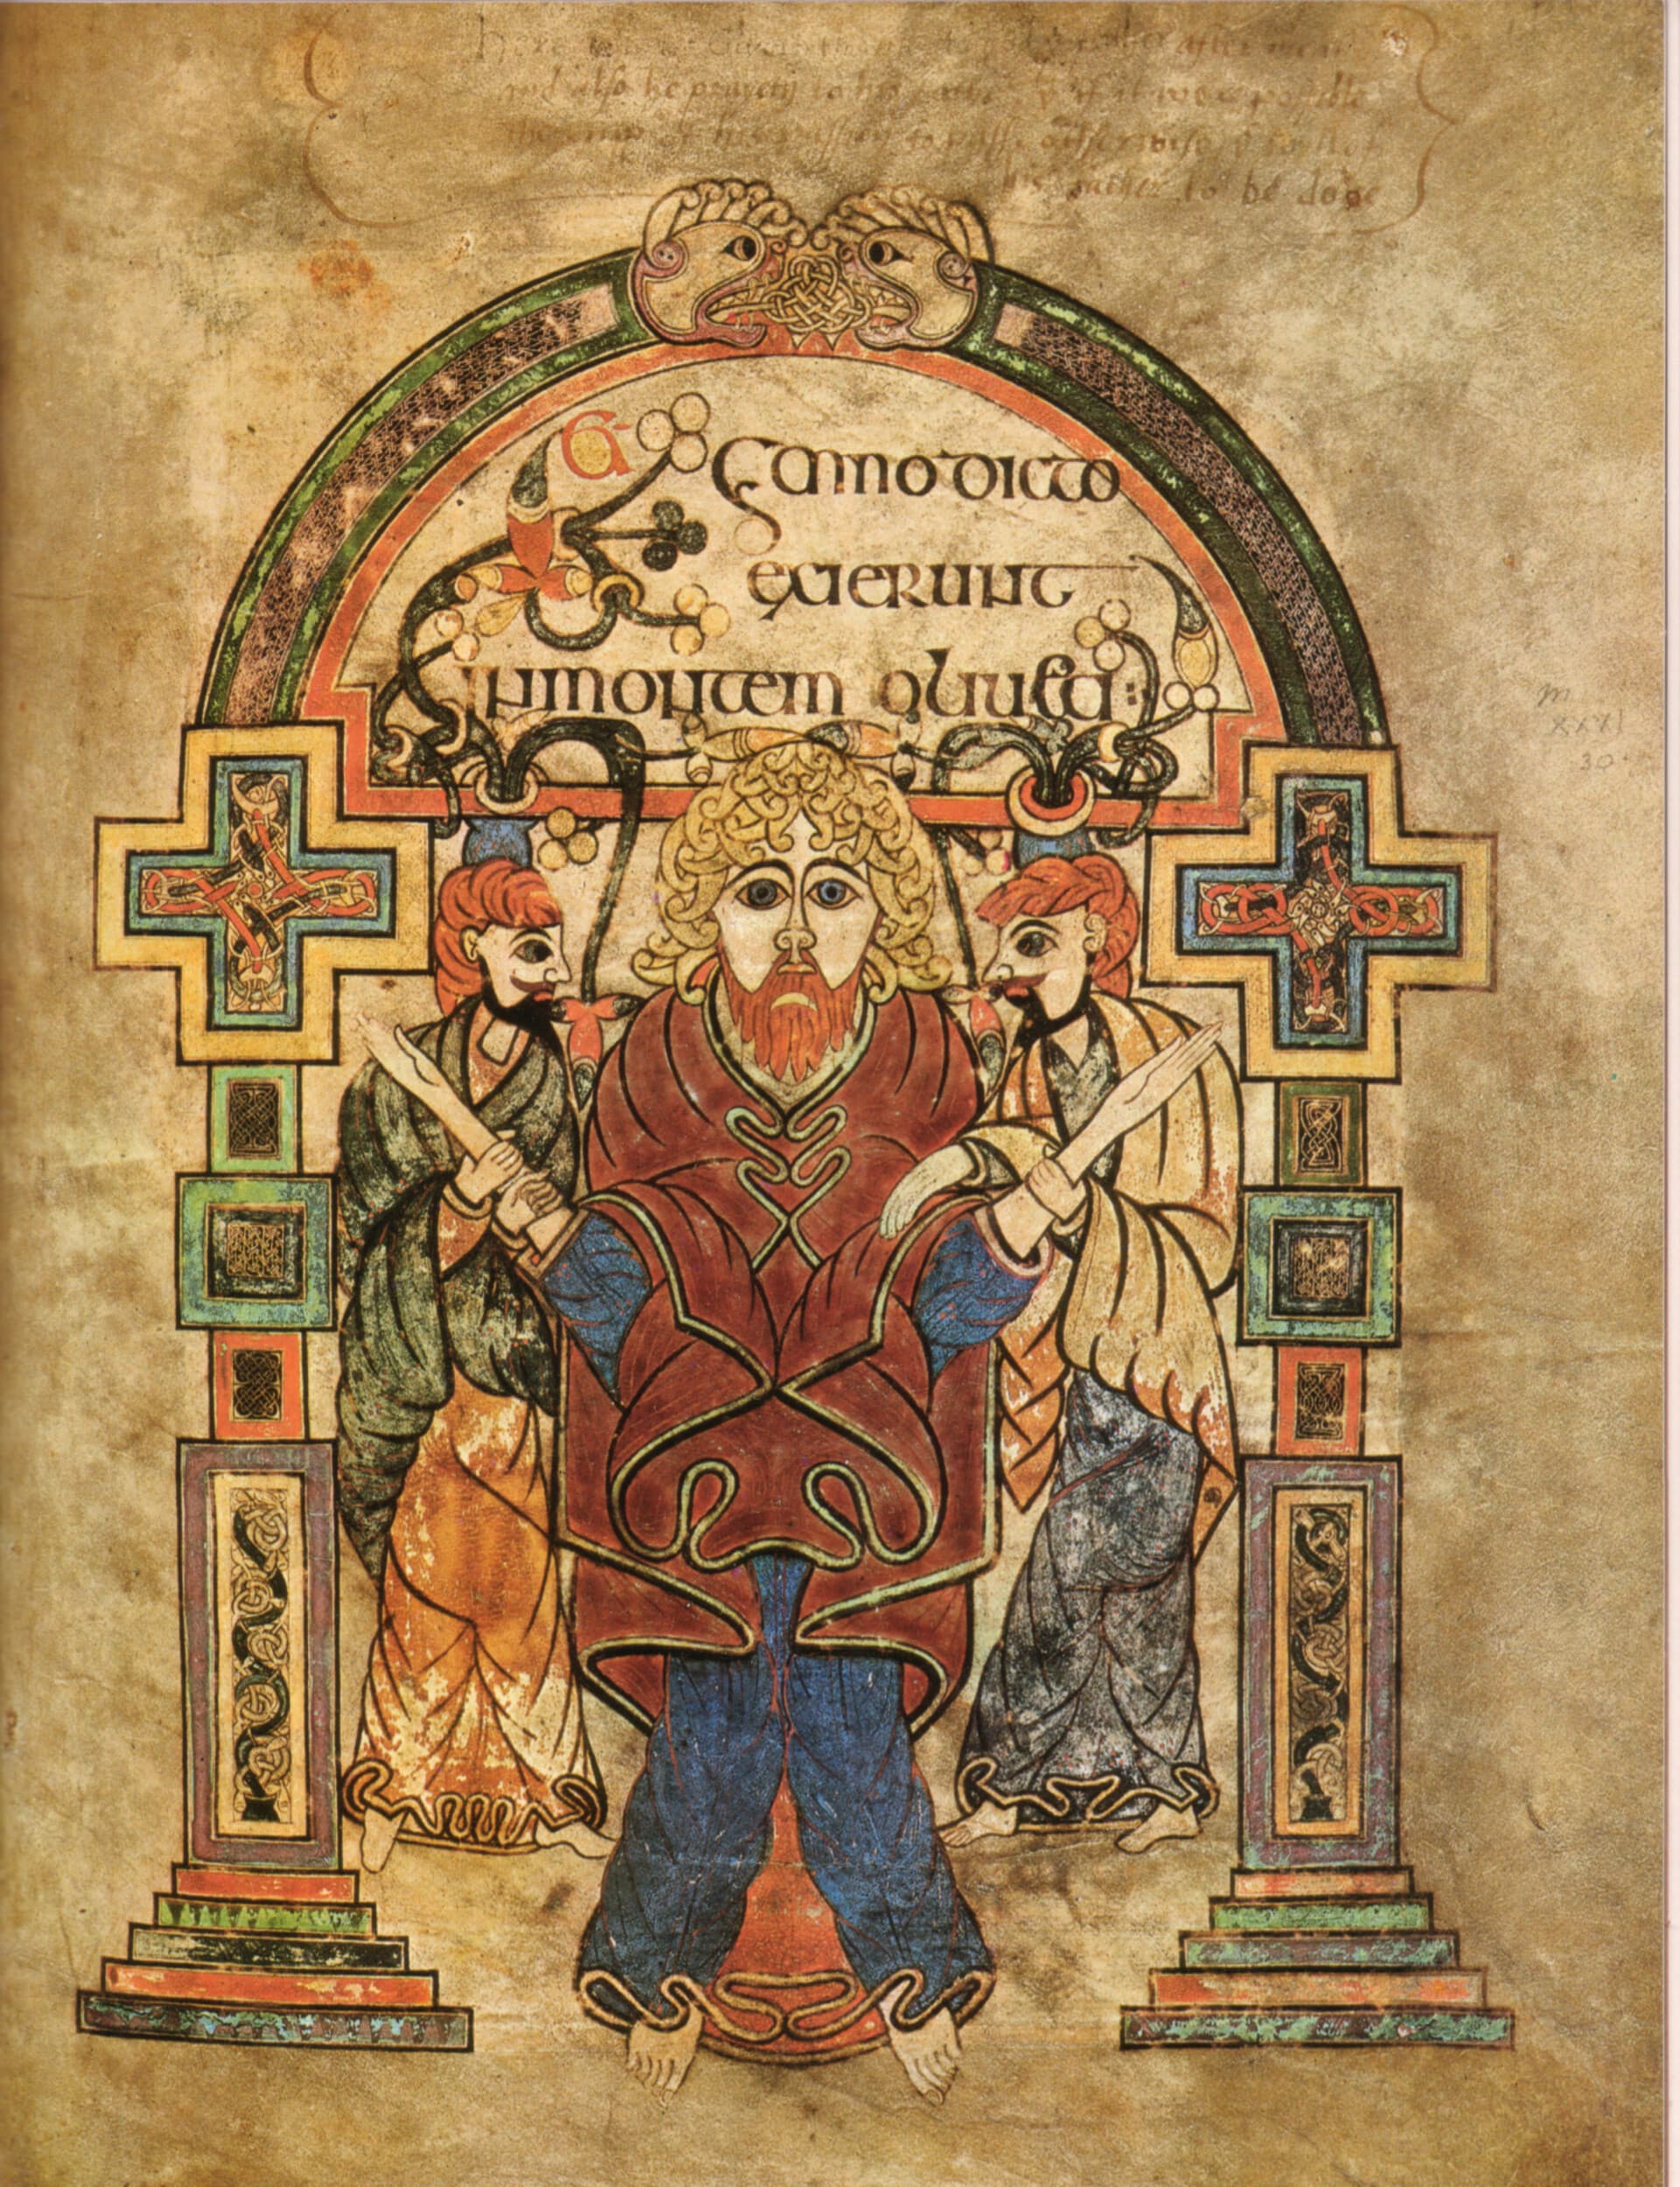 Here after
and also he to his if it were possible
of his passion to passe otherwise
his father to be done
Et ymno dicto
exierunt
in montem oliueti
m
xxvi
30